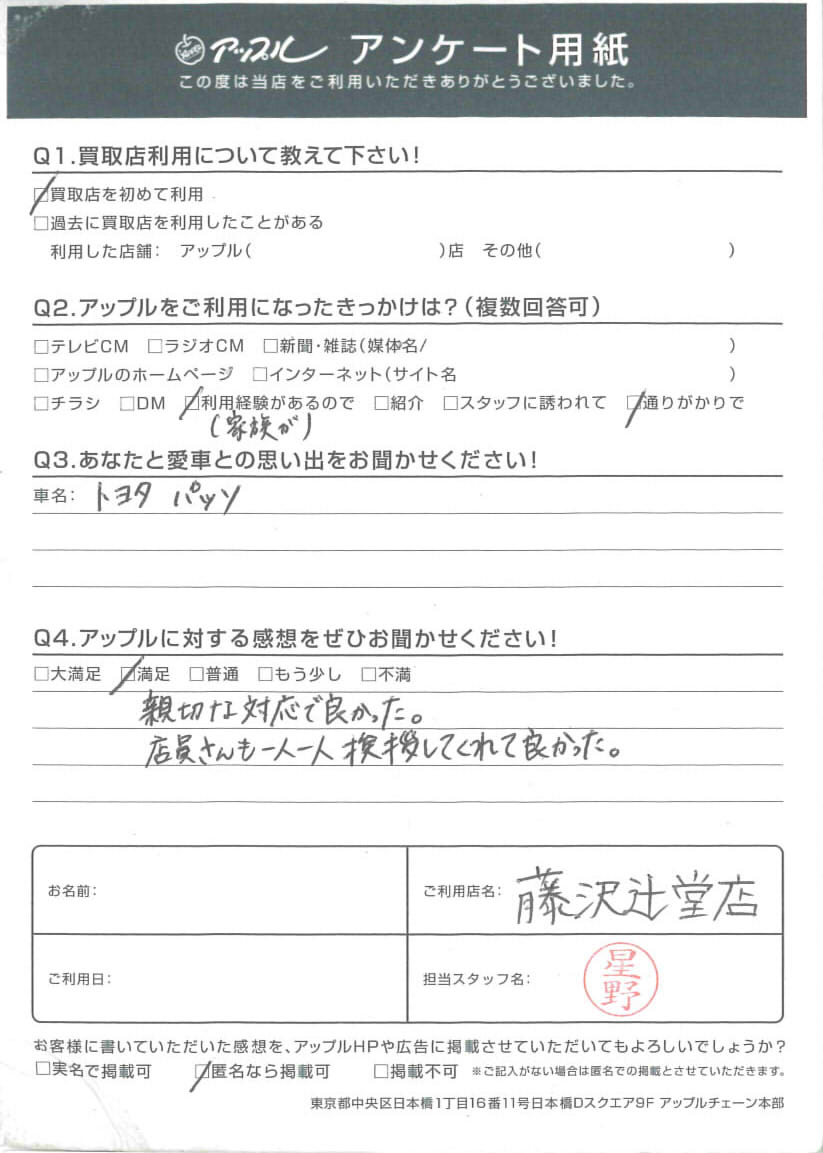 アップル アンケート用紙
この度は当店をご利用いただきありがとうございました。
Q1.買取店利用について教えて下さい!
☑買取店を初めて利用
□過去に買取店を利用したことがある
利用した店舗: アップル( )店 その他( )
Q2.アップルをご利用になったきっかけは?(複数回答可)
□テレビCM □ラジオCM □新聞・雑誌(媒体名/ )
□アップルのホームページ □インターネット(サイト名 )
□チラシ □DM ☑利用経験があるので □紹介 □スタッフに誘われて ☑通りがかりで
(家族が)
Q3.あなたと愛車との思い出をお聞かせください!
車名: トヨタ パッソ
Q4.アップルに対する感想をぜひお聞かせください!
□大満足 ☑満足 □普通 □もう少し □不満
親切な対応で良かった。
店員さんも一人一人挨拶してくれて良かった。
お名前: ご利用店名: 藤沢辻堂店
ご利用日: 担当スタッフ名: 星野
お客様に書いていただいた感想を、アップルHPや広告に掲載させていただいてもよろしいでしょうか?
□実名で掲載可 ☑匿名なら掲載可 □掲載不可 ※ご記入がない場合は匿名での掲載とさせていただきます。
東京都中央区日本橋1丁目16番11号日本橋Dスクエア9F アップルチェーン本部